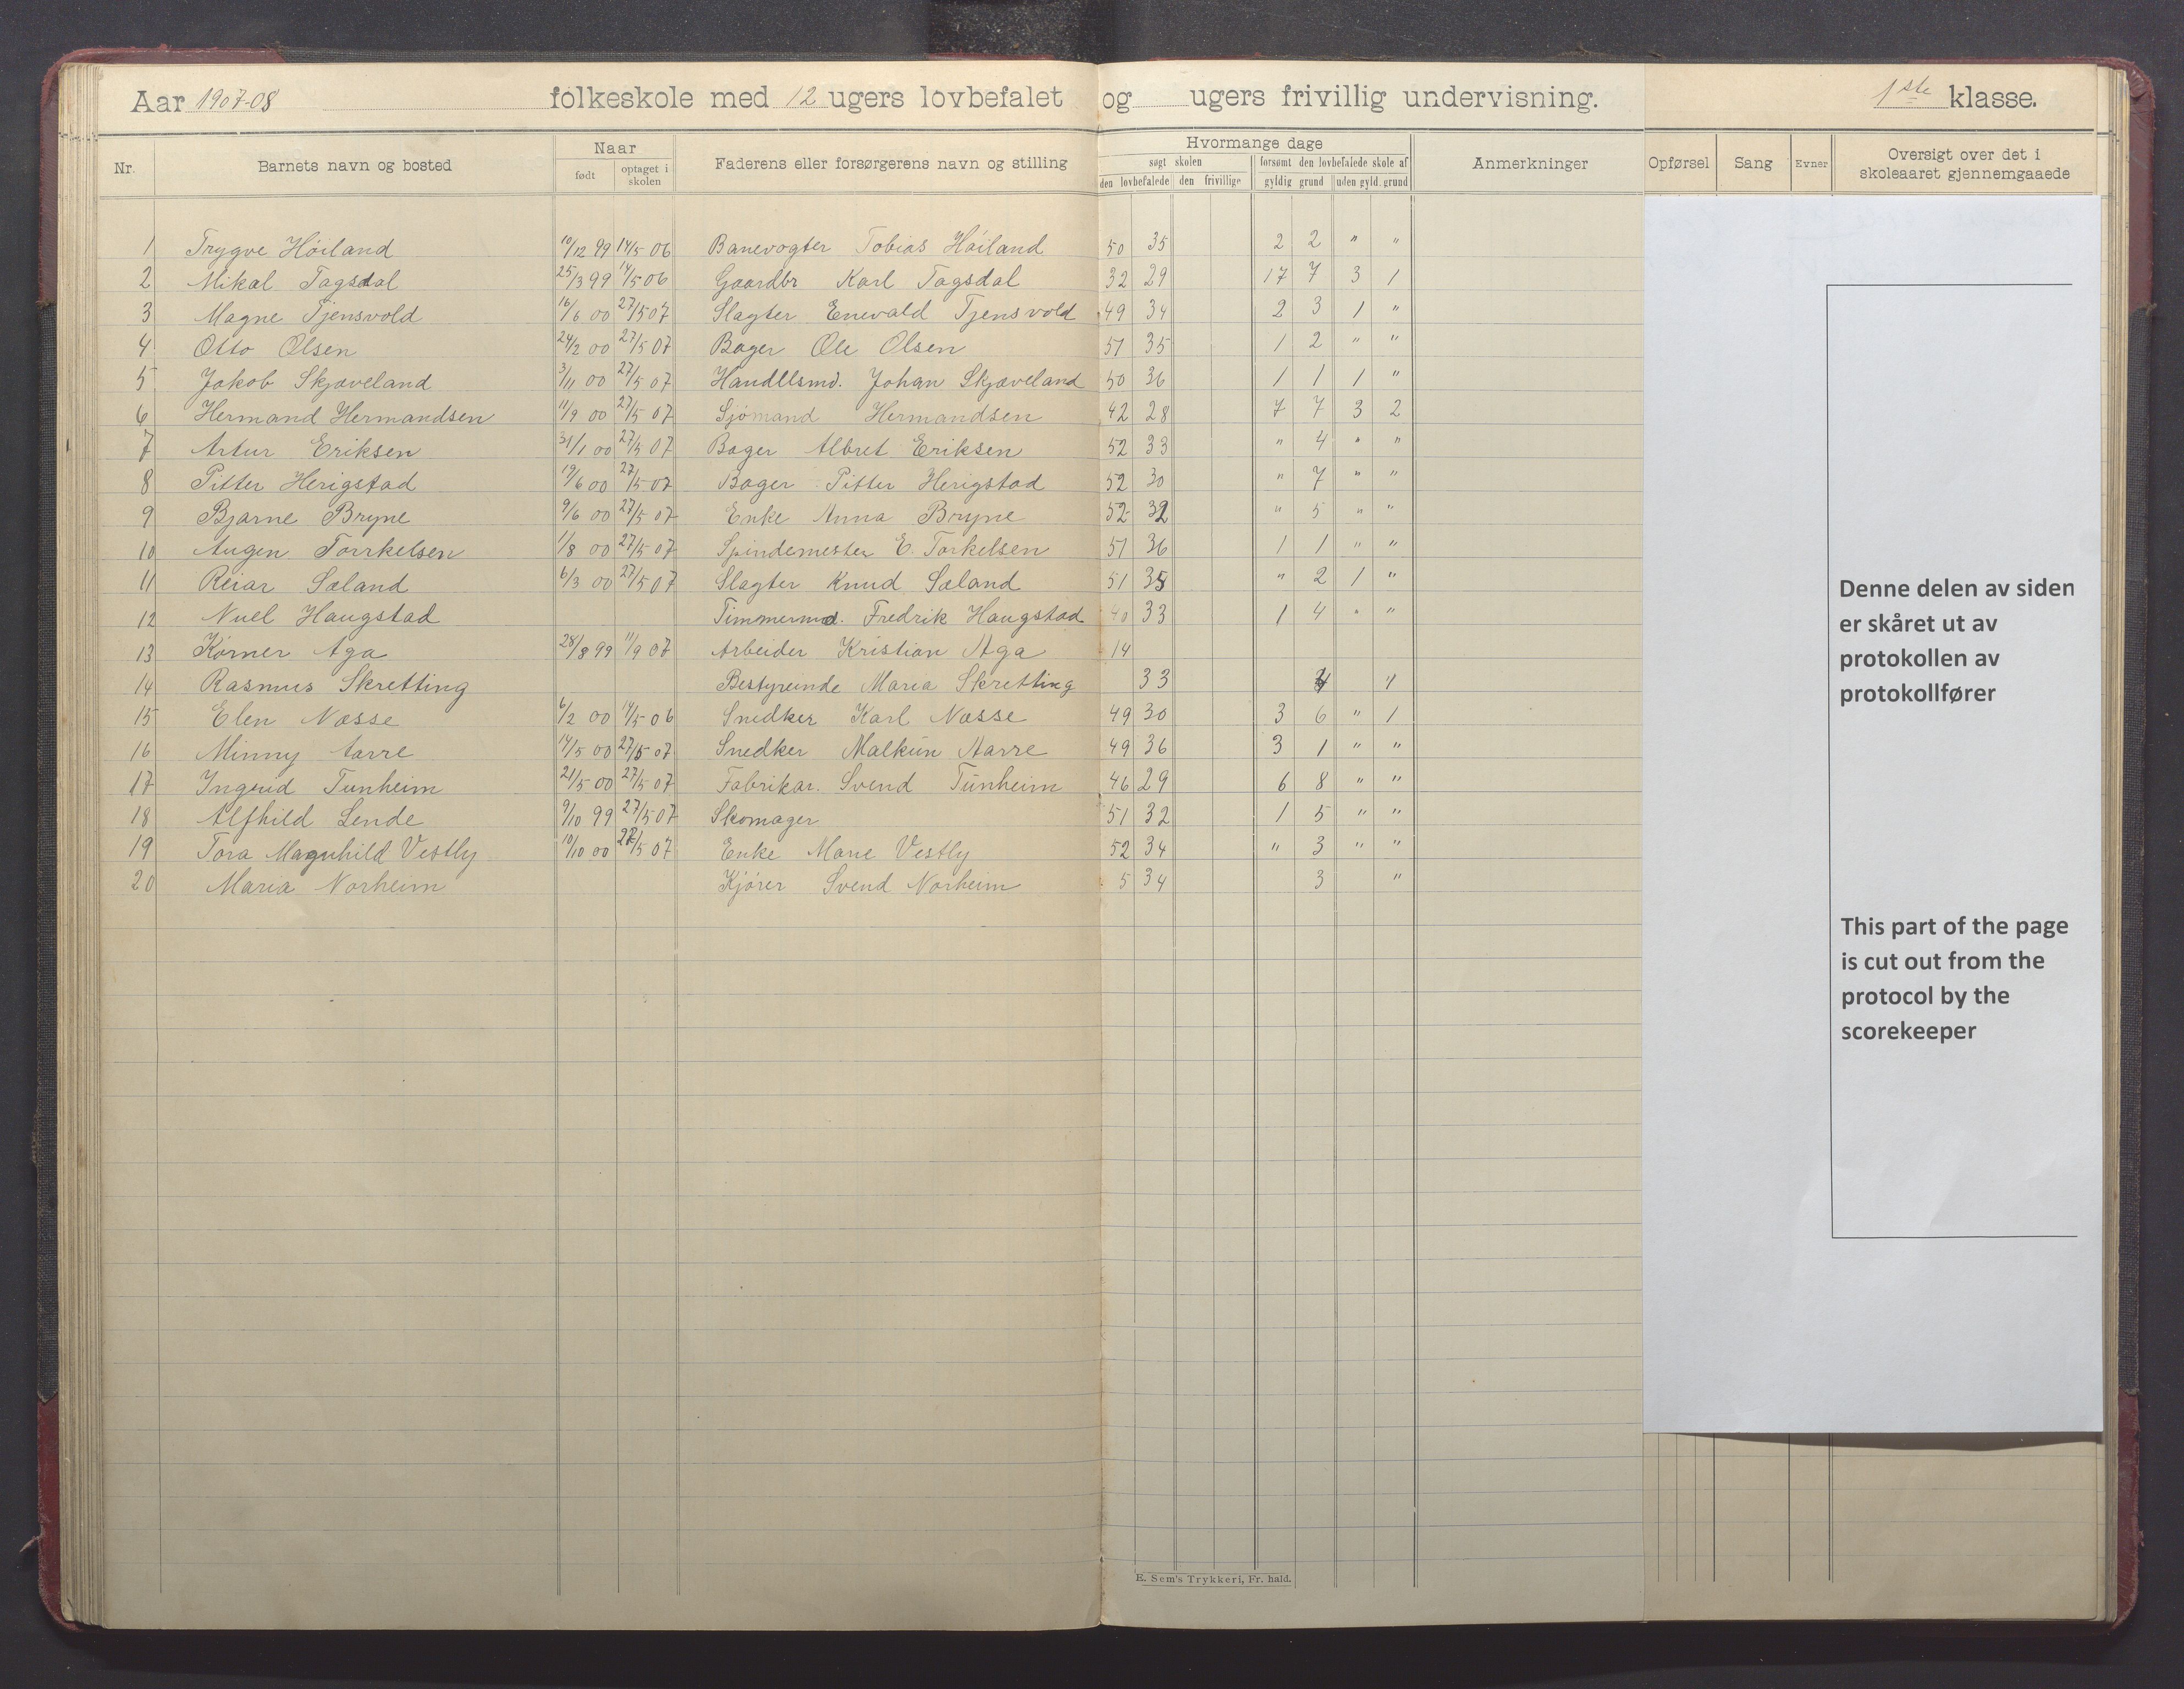 Aar 1907-08 folkeskole med 12 ugers lovbefalet og ugers frivillig undervisning. 1ste klasse.
Nr. Barnets navn og bosted Naar født optaget i skolen Faderens eller forsørgerens navn og stilling Hvormange dage søgt skolen den lovbefalede den frivillige forsømt den lovbefalede skole af gyldig grund uden gyld. grund Anmerkninger Opførsel Sang Evner Oversigt over det i skoleaaret gjennemgaaede
1 Trygve Höiland 10/12 99 14/5 06 Banevogter Tobias Höiland 50 35 2 2 " "
2 Mikal Tagsdal 25/3 99 14/5 06 Gaardbr Karl Tagsdal 32 29 17 7 3 1
3 Magne Tjensvold 16/6 00 27/5 07 Slagter Enevald Tjensvold 49 34 2 3 1 "
4 Otto Olsen 24/2 00 27/5 07 Bager Ole Olsen 51 35 1 2 " "
5 Jakob Skjæveland 3/11 00 27/5 07 Handelsmd. Johan Skjæveland 50 36 1 1 1 "
6 Hermand Hermandsen 11/9 00 27/5 07 Sjömand Hermandsen 42 28 7 7 3 2
7 Artur Eriksen 31/1 00 27/5 07 Bager Albret Eriksen 52 33 " 4 " "
8 Pitter Herigstad 19/6 00 27/5 07 Bager Pitter Herigstad 52 30 " 7 " "
9 Bjarne Bryne 9/6 00 27/5 07 Enke Anna Bryne 52 32 " 5 " "
10 Augen Torrkelsen 1/8 00 27/5 07 Spindemester E. Torkelsen 51 36 1 1 " "
11 Reiar Sæland 6/3 00 27/5 07 Slagter Knud Sæland 51 35 " 2 1 "
12 Nuel Haugstad Timmermd. Fredrik Haugstad 40 33 1 4 " "
13 Körner Aga 28/8 99 11/9 07 Arbeider Kristian Aga 14
14 Rasmus Skretting Bestyreinde Maria Skretting 33 4 "
15 Elen Næsse 6/2 00 14/5 06 Snedker Karl Næsse 49 30 3 6 " 1
16 Minny Aarre 14/5 00 27/5 07 Snedker Malkün Aarre 49 36 3 1 " "
17 Ingrid Tunheim 21/5 00 27/5 07 Fabrikar. Svend Tünheim 46 29 6 8 " "
18 Alfhild Lende 9/10 99 27/5 07 Skomager 51 32 1 5 " "
19 Tora Magnhild Vestly 10/10 00 27/5 07 Enke Marie Vestly 52 34 " 3 " "
20 Maria Norheim Kjörer Svend Norheim 5 34 3 "
Denne delen av siden
er skåret ut av
protokollen av
protokollfører
This part of the page
is cut out from the
protocol by the
scorekeeper
E. Sem's Trykkeri, Fr. hald.